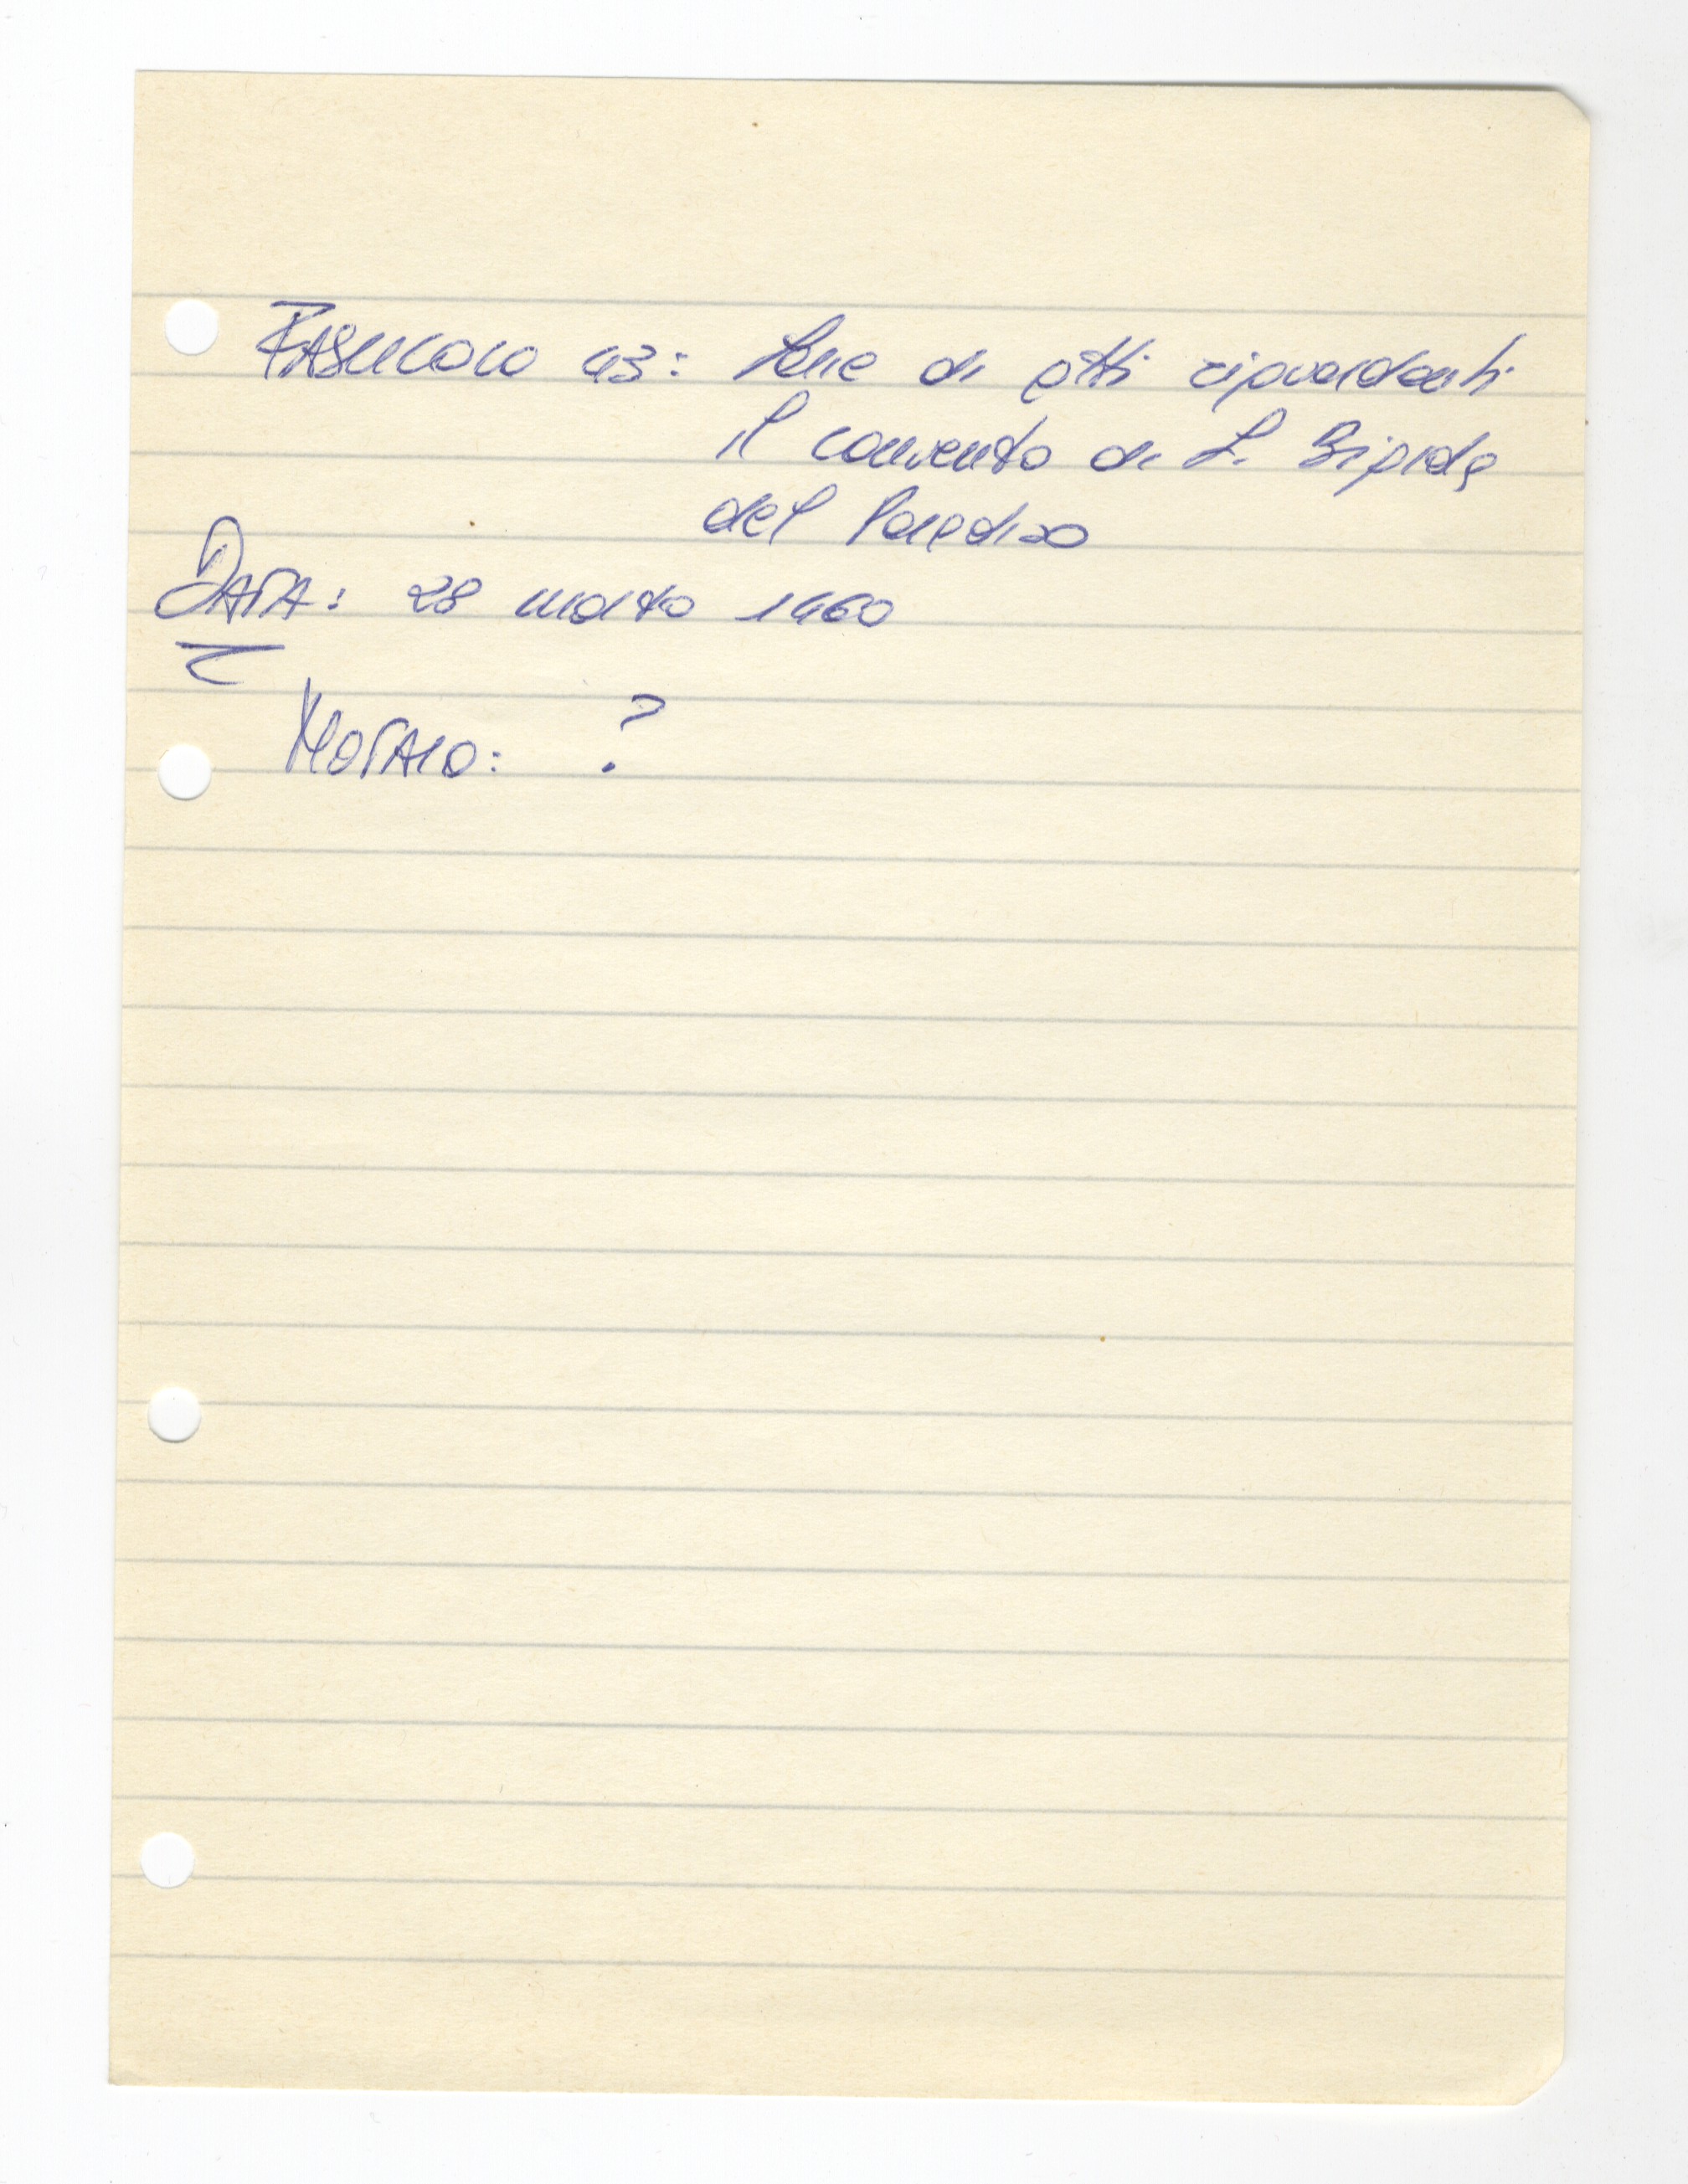 FASCICOLO 43: Serie di atti riguardanti
il convento di S. Brigida
del Paradiso
DATA: 28 marzo 1460
NOTAIO: ?